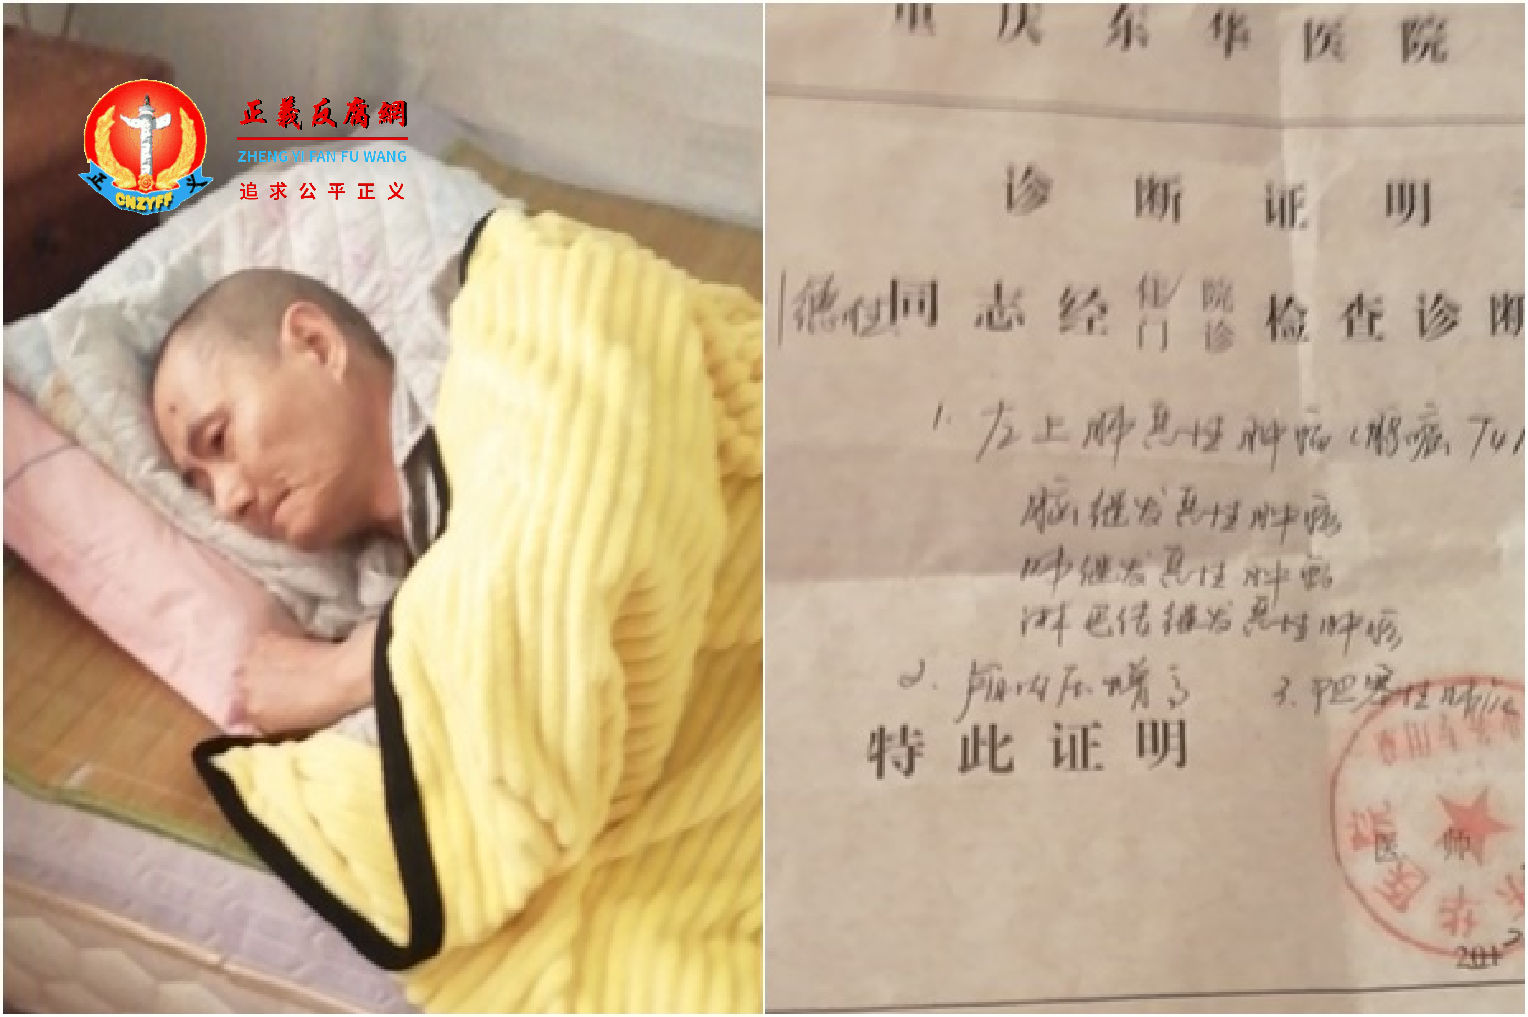 正義反腐網
ZHENG YI FAN FU WANG
追求公平正义
正 义
CNZYFF
重庆东华医院
诊断证明
德仕同志经住院门诊检查诊断
1. 左上肺恶性肿瘤(腺癌
脑继发恶性肿瘤
肺继发恶性肿瘤
淋巴结继发恶性肿瘤
2. 颅内压增高 3. 阻塞性肺
特此证明
医师
东华医院